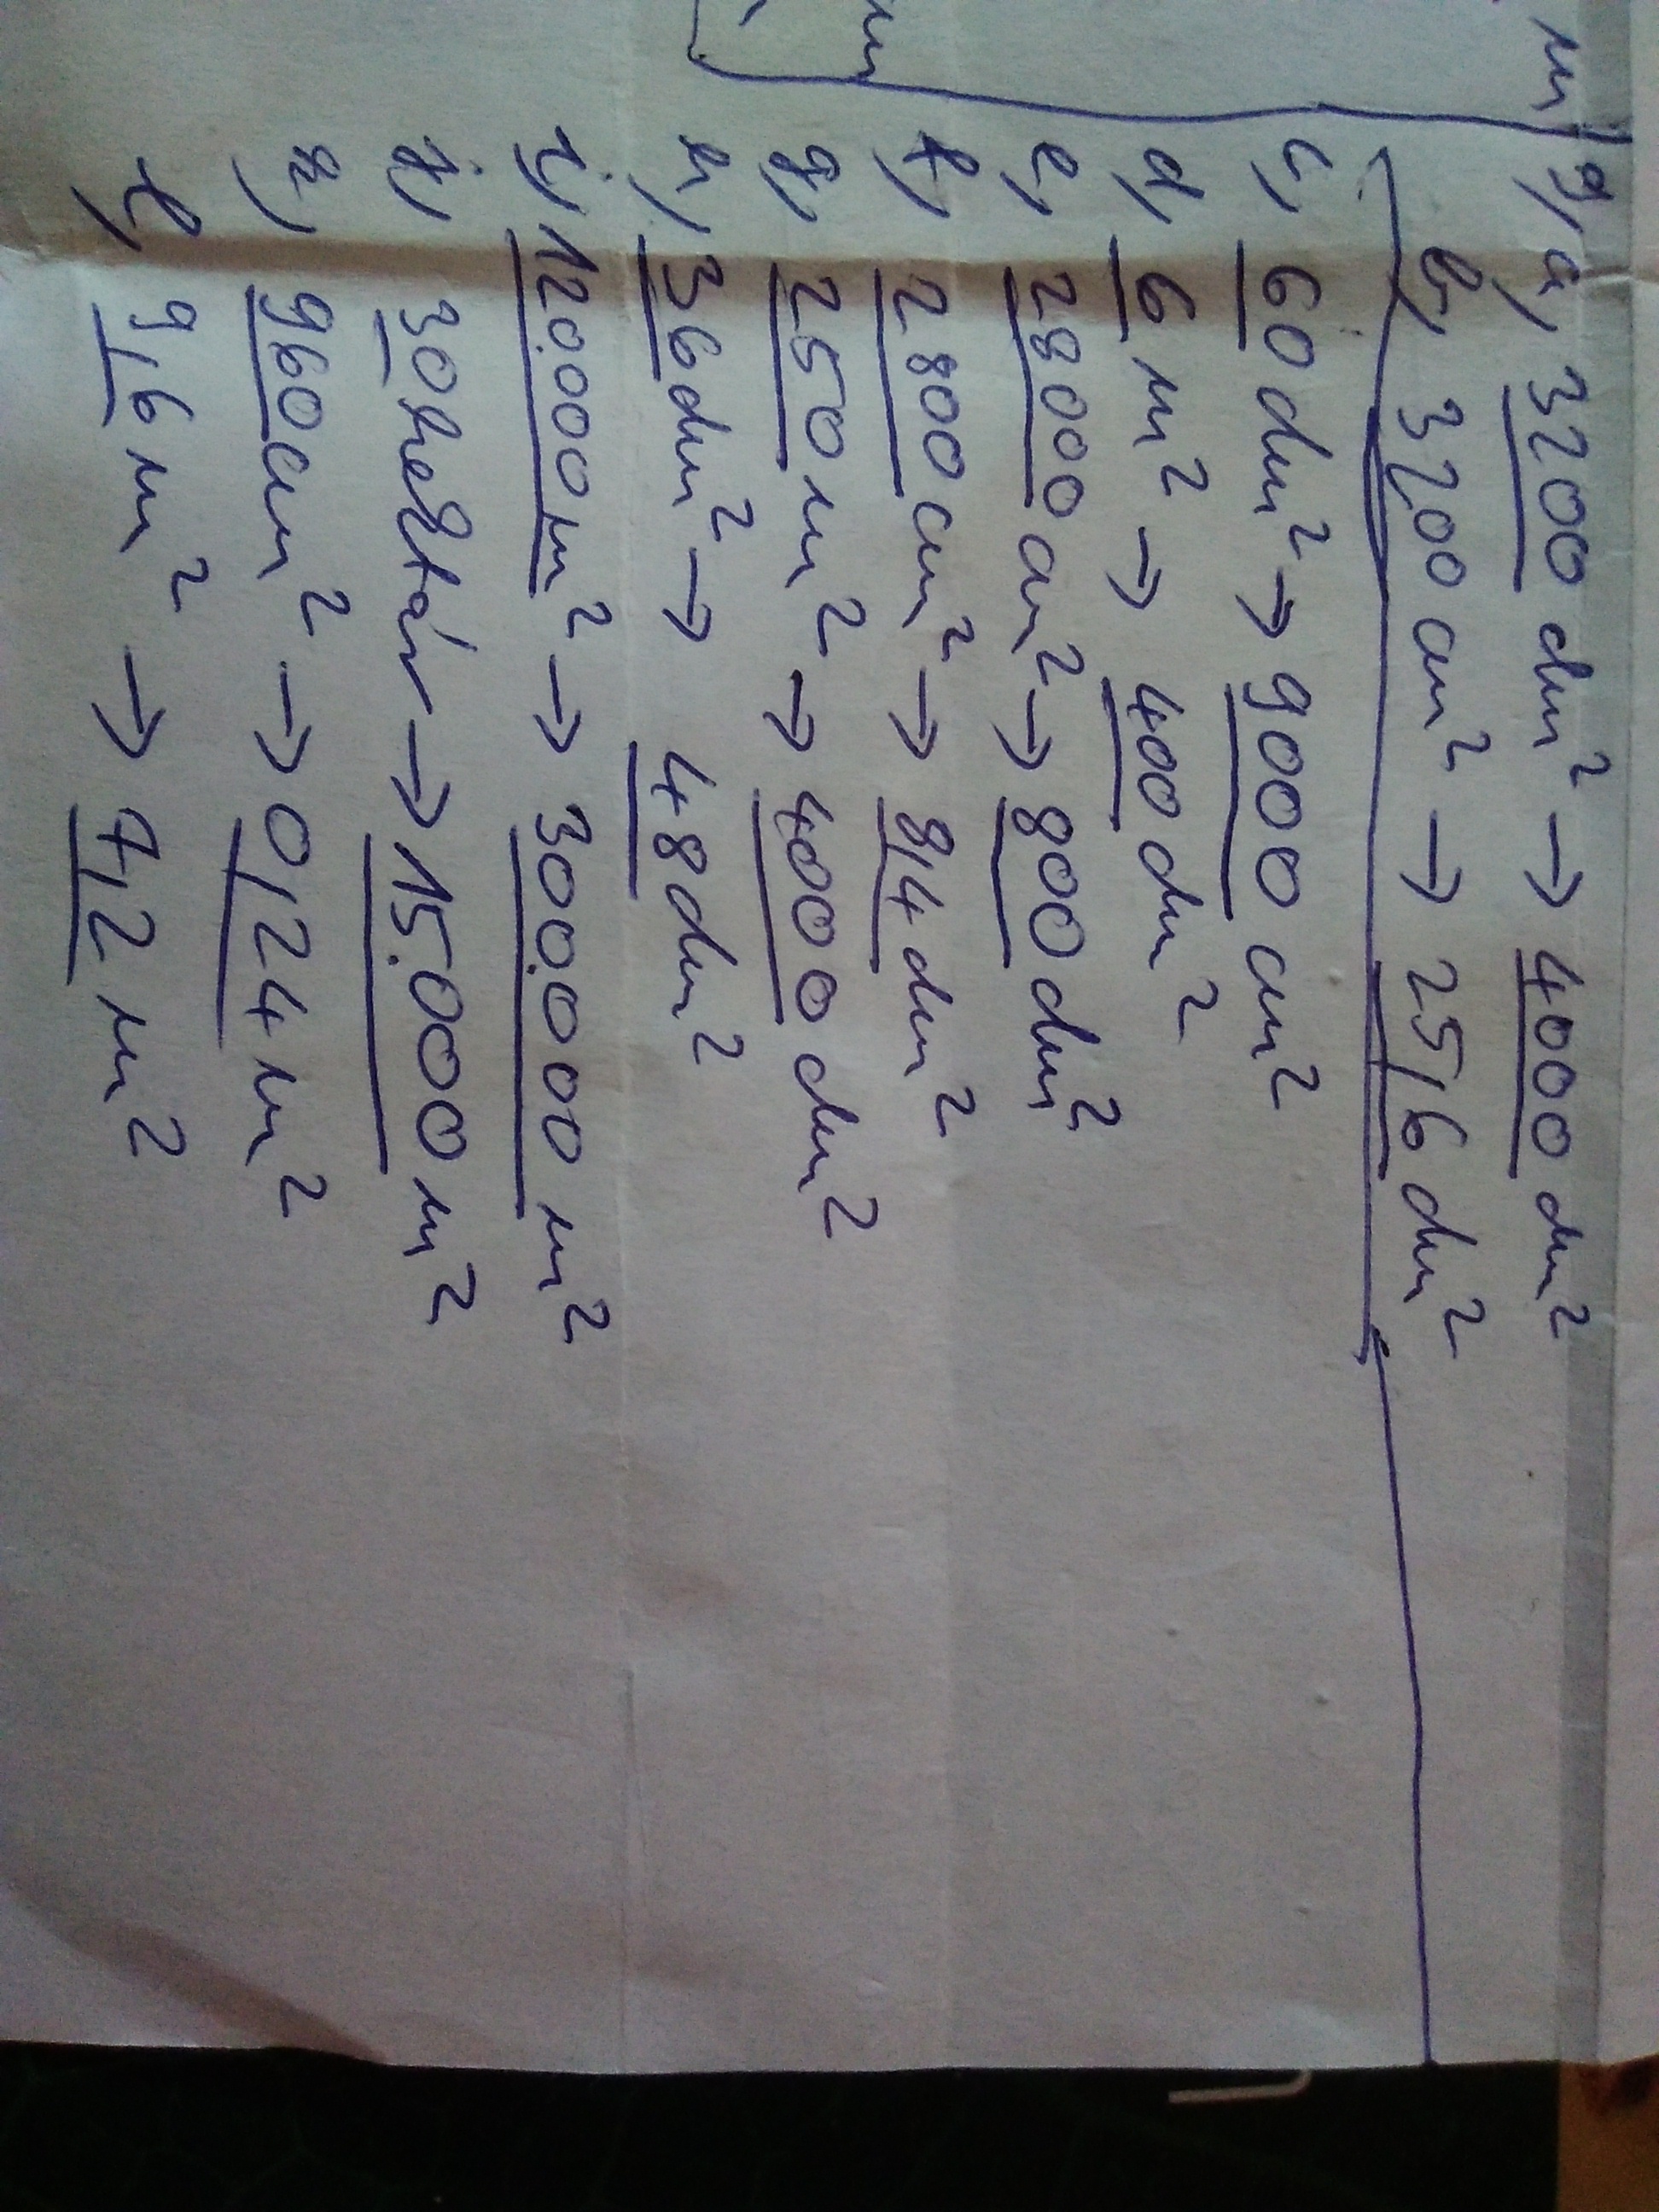 m
m
9, a, 3200 dm² → 4000 dm²
b, 3200 cm² → 25,6 dm²
c, 60 dm² → 9000 cm²
d, 6 m² → 400 dm²
e, 28000 cm² → 800 dm²
f, 2800 cm² → 8,4 dm²
g, 250 m² → 4000 dm²
h, 36 dm² → 48 dm²
i, 120.000 m² → 300.000 m²
j, 30 hektár → 15.000 m²
k, 960 cm² → 0,24 m²
l, 9,6 m² → 7,2 m²